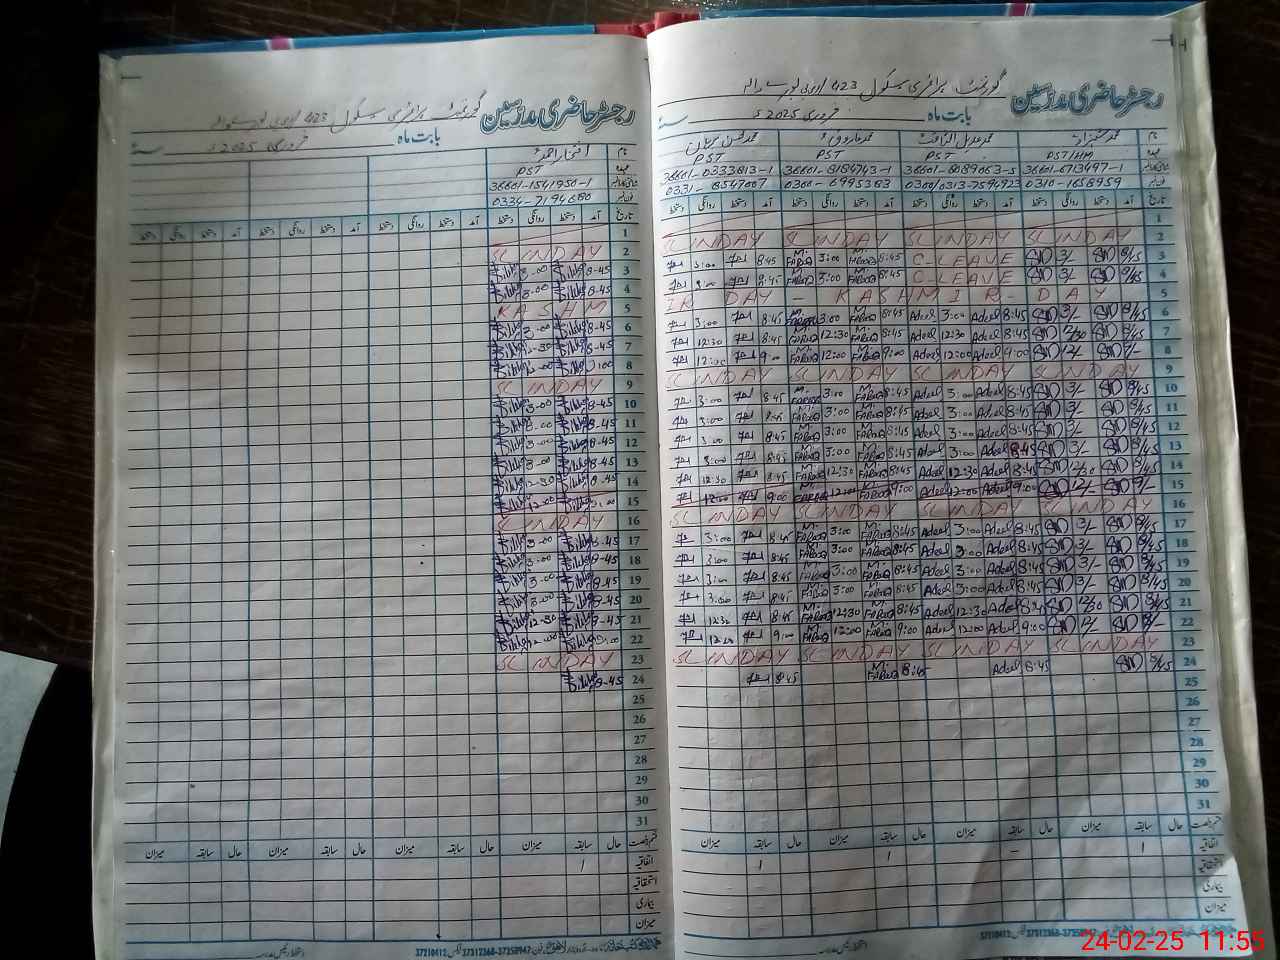 رجسٹر حاضری مدرسین
گورنمنٹ پرائمری سکول 423
بابت ماہ فروری 2025ء
نام
عہدہ
PST/HM PST PST PST
36601-6713497-1 36601-8089063-5 36601-8184743-1 36601-0333613-1
0310-1658959 0300/0313-7594923 0300-6995383 0331-8547007
تاریخ آمد دستخط روانگی دستخط آمد دستخط روانگی دستخط آمد دستخط روانگی دستخط آمد دستخط روانگی دستخط
1
2 SUNDAY SUNDAY SUNDAY SUNDAY
3 8/45 SND 3/- SND C-LEAVE 8:45 M. FAROOQ 3:00 M. FAROOQ 8:45 3:00
4 8/45 SND 3/- SND C-LEAVE 8:45 M. FAROOQ 3:00 M. FAROOQ 8:45 3:00
5 IR DAY - KASHMIR - DAY
6 8/45 SND 3/- SND 8:45 Adeel 3:00 Adeel 8:45 M. FAROOQ 3:00 M. FAROOQ 8:45 3:00
7 8/45 SND 12/30 SND 8:45 Adeel 12:30 Adeel 8:45 M. FAROOQ 12:30 M. FAROOQ 8:45 12:30
8 9/- SND 12/- SND 9:00 Adeel 12:00 Adeel 9:00 M. FAROOQ 12:00 M. FAROOQ 9:00 12:00
9 SUNDAY SUNDAY SUNDAY SUNDAY
10 8/45 SND 3/- SND 8:45 Adeel 3:00 Adeel 8:45 M. FAROOQ 3:00 M. FAROOQ 8:45 3:00
11 8/45 SND 3/- SND 8:45 Adeel 3:00 Adeel 8:45 M. FAROOQ 3:00 M. FAROOQ 8:45 3:00
12 8/45 SND 3/- SND 8:45 Adeel 3:00 Adeel 8:45 M. FAROOQ 3:00 M. FAROOQ 8:45 3:00
13 8/45 SND 3/- SND 8:45 Adeel 3:00 Adeel 8:45 M. FAROOQ 3:00 M. FAROOQ 8:45 3:00
14 8/45 SND 12/30 SND 8:45 Adeel 12:30 Adeel 8:45 M. FAROOQ 12:30 M. FAROOQ 8:45 12:30
15 9/- SND 12/- SND 9:00 Adeel 12:00 Adeel 9:00 M. FAROOQ 12:00 M. FAROOQ 9:00 12:00
16 SUNDAY SUNDAY SUNDAY SUNDAY
17 8/45 SND 3/- SND 8:45 Adeel 3:00 Adeel 8:45 M. FAROOQ 3:00 M. FAROOQ 8:45 3:00
18 8/45 SND 3/- SND 8:45 Adeel 3:00 Adeel 8:45 M. FAROOQ 3:00 M. FAROOQ 8:45 3:00
19 8/45 SND 3/- SND 8:45 Adeel 3:00 Adeel 8:45 M. FAROOQ 3:00 M. FAROOQ 8:45 3:00
20 8/45 SND 3/- SND 8:45 Adeel 3:00 Adeel 8:45 M. FAROOQ 3:00 M. FAROOQ 8:45 3:00
21 8/45 SND 12/30 SND 8:45 Adeel 12:30 Adeel 8:45 M. FAROOQ 12:30 M. FAROOQ 8:45 12:30
22 9/- SND 12/- SND 9:00 Adeel 12:00 Adeel 9:00 M. FAROOQ 12:00 M. FAROOQ 9:00 12:00
23 SUNDAY SUNDAY SUNDAY SUNDAY
24 8/45 SND 8:45 Adeel 8:45 M. FAROOQ 8:45
25
26
27
28
29
30
31
قسم رخصت حال سابقہ میزان حال سابقہ میزان حال سابقہ میزان حال سابقہ میزان
اتفاقیہ 1 - 1 1
استحقاقیہ
بیماری
میزان
رجسٹر حاضری مدرسین
گورنمنٹ پرائمری سکول 423
بابت ماہ فروری 2025ء
نام افتخار احمد
عہدہ PST
36601-1541950-1
0334-7194680
تاریخ آمد دستخط روانگی دستخط آمد دستخط روانگی دستخط آمد دستخط روانگی دستخط
1
2 SUNDAY
3 8-45 3-00
4 8-45 3-00
5 KASHM
6 8-45 3-00
7 8-45 12-30
8 9-00 12-00
9 SUNDAY
10 8-45 3-00
11 8-45 3-00
12 8-45 3-00
13 8-45 3-00
14 8-45 12-30
15 9-00 12-00
16 SUNDAY
17 8-45 3-00
18 8-45 3-00
19 8-45 3-00
20 8-45 3-00
21 8-45 12-30
22 9-00 12-00
23 SUNDAY
24 8-45
25
26
27
28
29
30
31
قسم رخصت حال سابقہ میزان حال سابقہ میزان حال سابقہ میزان حال سابقہ میزان
اتفاقیہ 1
استحقاقیہ
بیماری
میزان
24-02-25 11:55